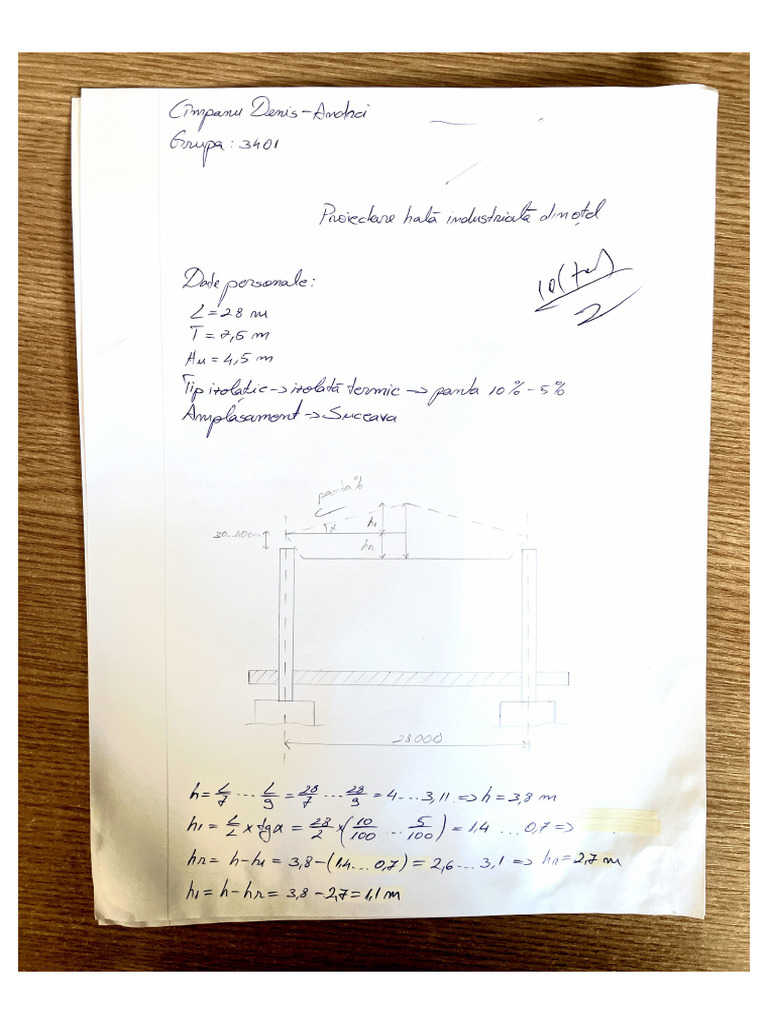 Cîmpanu Denis-Andrei
Grupa: 3401
Proiectare hală industrială din oțel
Date personale:
L = 28 m
T = 7,5 m
Hu = 4,5 m
Tip izolație → izolată termic → panta 10% - 5%
Amplasament → Suceava
panta %
h1
30...40cm
hr
28000
h = L/7 ... L/9 = 28/7 ... 28/9 = 4 ... 3,11 => h = 3,8 m
h1 = L/2 x tgα = 28/2 x (10/100 ... 5/100) = 1,4 ... 0,7 =>
hr = h - h1 = 3,8 - (1,4 ... 0,7) = 2,6 ... 3,1 => hr = 2,7 m
h1 = h - hr = 3,8 - 2,7 = 1,1 m